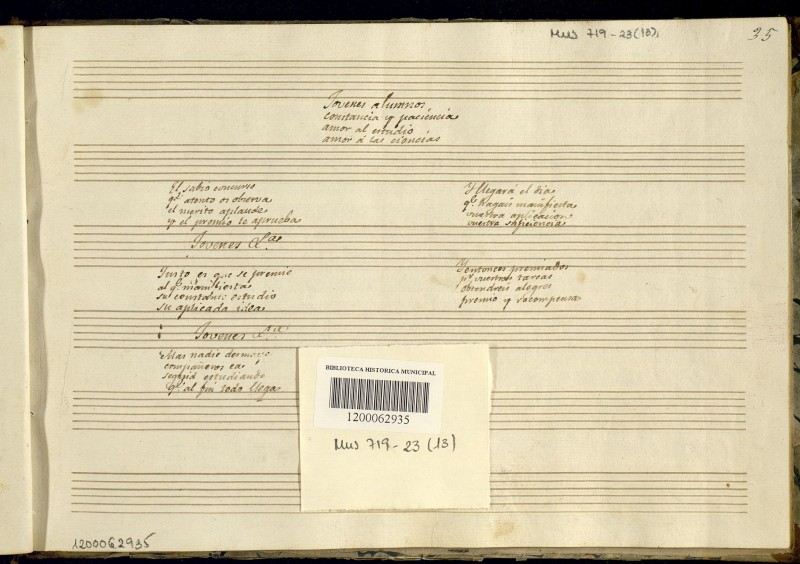 Mus 719-23(13)
35
Jovenes alumnos
constancia y paciencia
amor al estudio
amor á las ciencias
El sabio concurso
qe. atento os observa
el merito aplaude
y el premio le aprueba
Jovenes &a.
Justo es que se premie
al qe. manifiesta
su constante estudio
su aplicada idea
Jovenes &a.
Mas nadie desmaye
compañeros ea
seguid estudiando
qe. al fin todo llega
Y llegará el dia
qe. hagais manifiesta
vuestra aplicacion
vuestra suficiencia
Y entonces premiados
pr. vuestras tareas
obtendreis alegres
premio y recompensa
BIBLIOTECA HISTORICA MUNICIPAL
1200062935
Mus 719-23 (13)
1200062935